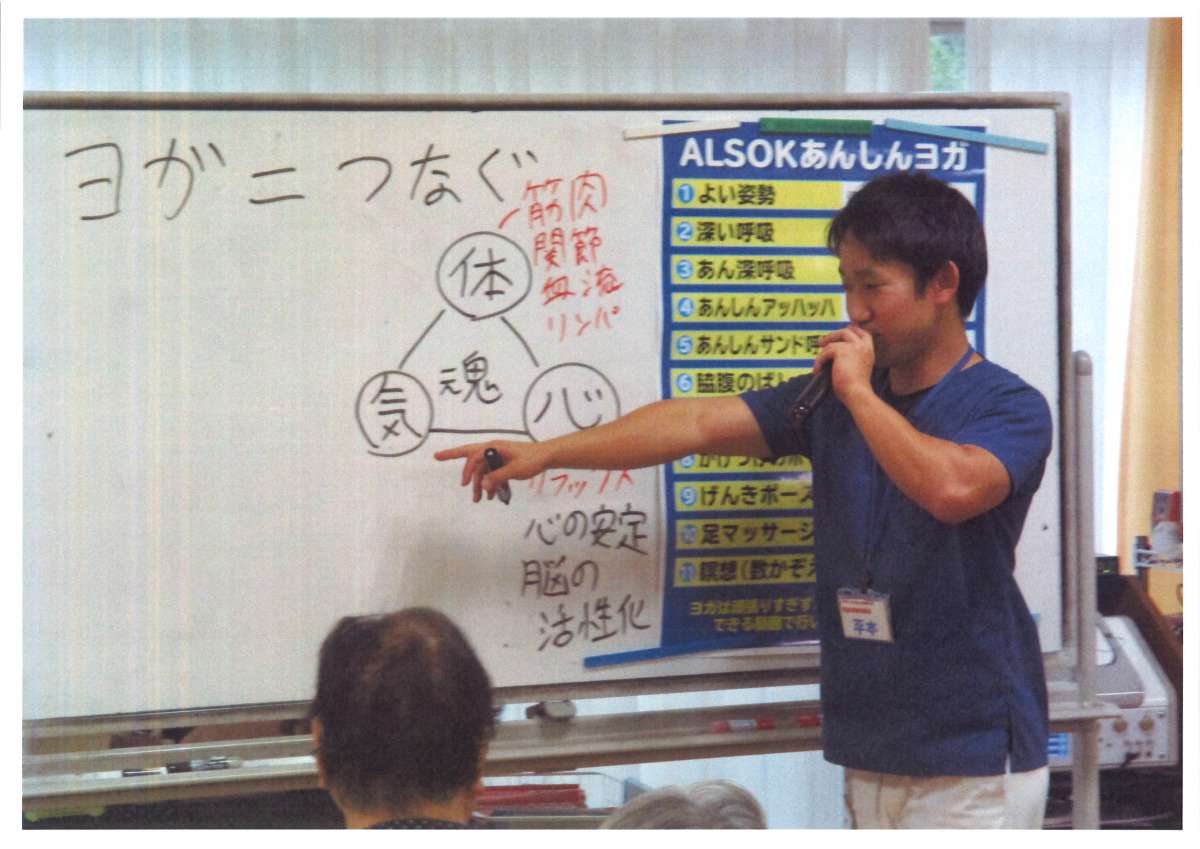 ヨガ＝つなぐ
体
筋肉
関節
血流
リンパ
魂
気
心
心の安定
脳の
活性化
ALSOKあんしんヨガ
① よい姿勢
② 深い呼吸
③ あん深呼吸
④ あんしんアッハッハ
⑤ あんしんサンド呼
⑥ 脇腹の
⑨ げんきポーズ
⑩ 足マッサージ
⑪ 瞑想（数かぞえ
ヨガは頑張りすぎず
できる範囲で行い
平本